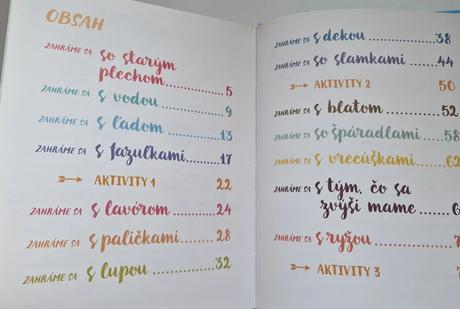 OBSAH
ZAHRÁME SA so starým
plechom..........5
ZAHRÁME SA s vodou..........9
ZAHRÁME SA s ľadom..........13
ZAHRÁME SA s fazuľkami..........17
AKTIVITY 1 22
ZAHRÁME SA s lavórom..........24
ZAHRÁME SA s paličkami..........28
ZAHRÁME SA s lupou..........32
ZAHRÁME SA s dekou..........38
ZAHRÁME SA so slamkami..........44
AKTIVITY 2 50
ZAHRÁME SA s blatom..........52
ZAHRÁME SA so špáradlami..........58
ZAHRÁME SA s vrecúškami..........62
ZAHRÁME SA s tým, čo sa
zvýši mame..........
ZAHRÁME SA s ryžou..........
AKTIVITY 3